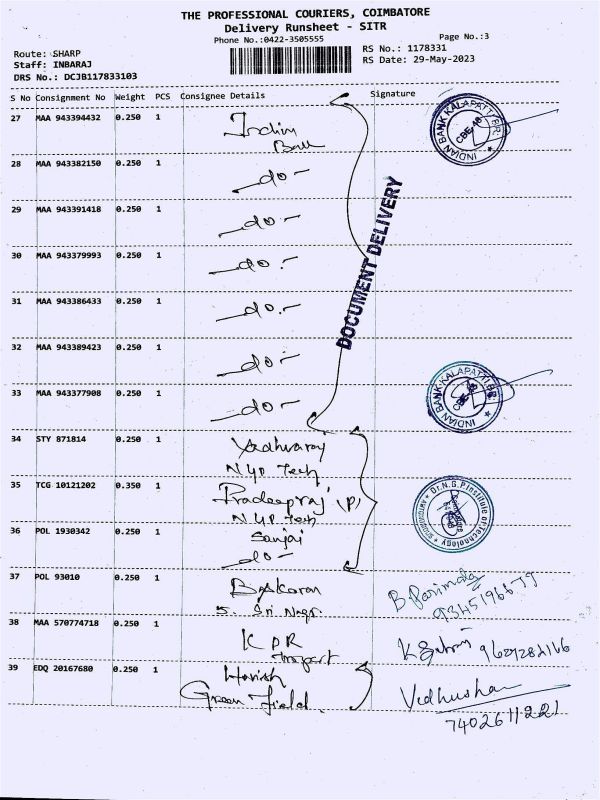 THE PROFESSIONAL COURIERS, COIMBATORE
Delivery Runsheet - SITR
Phone No.:0422-3505555
Page No.:3
Route: SHARP
RS No.: 1178331
Staff: INBARAJ
RS Date: 29-May-2023
DRS No.: DCJB117833103
S No Consignment No Weight PCS Consignee Details Signature
27 MAA 943394432 0.250 1 Indian
Bank
INDIAN BANK KALAPATTI BR. CBE-48
28 MAA 943382150 0.250 1 do -
29 MAA 943391418 0.250 1 do -
DOCUMENT DELIVERY
30 MAA 943379993 0.250 1 do -
31 MAA 943386433 0.250 1 do -
32 MAA 943389423 0.250 1 do -
33 MAA 943377908 0.250 1 do -
INDIAN BANK KALAPATTI BR. CBE-48
34 STY 871814 0.250 1
Tech
35 TCG 10121202 0.350 1 Pradeepraj (P)
Tech
Dr.N.G.P.Institute of Technology
36 POL 1930342 0.250 1 Sanjai
do -
37 POL 93010 0.250 1 Baskaran
S. Sri Nagr.
B Parimala
38 MAA 570774718 0.250 1 K P R
K
9629282166
39 EDQ 20167680 0.250 1 Harish
Green Field
Vedhushan
7402611221